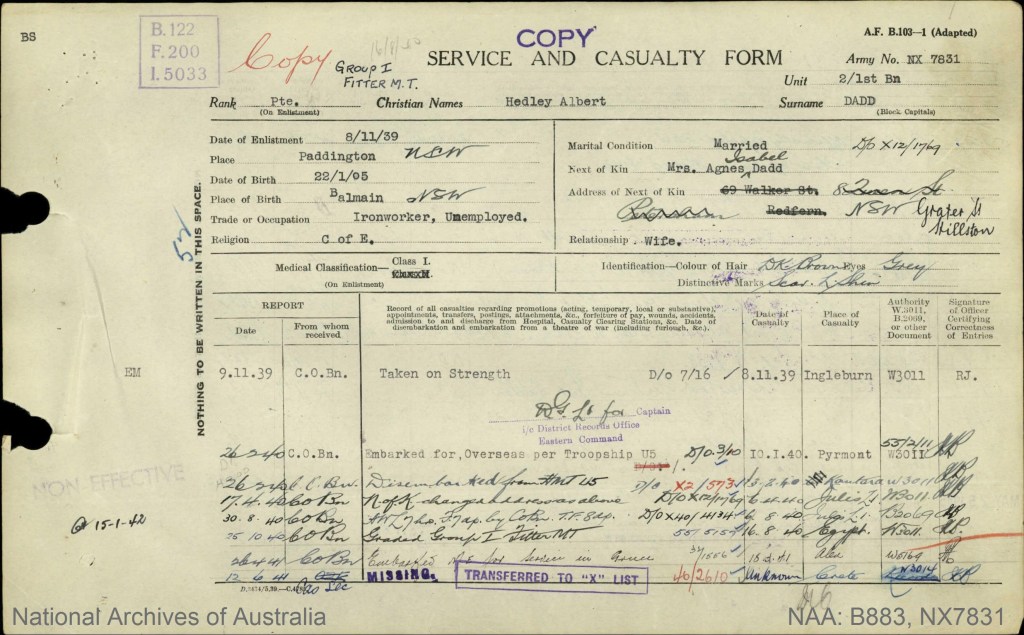 BS
B.122
F.200
I.5033
Copy
16/8/40
GROUP I
FITTER M.T.
COPY
SERVICE AND CASUALTY FORM
A.F. B.103—1 (Adapted)
Army No. NX 7831
Unit 2/1st Bn
Rank Pte. Christian Names Hedley Albert Surname DADD
(On Enlistment) (Block Capitals)
Date of Enlistment 8/11/39
Place Paddington NSW
Date of Birth 22/1/05
Place of Birth Balmain NSW
Trade or Occupation Ironworker, Unemployed.
Religion C of E.
Marital Condition Married D/O X12/1769
Next of Kin Mrs. Agnes Isabel Dadd
Address of Next of Kin 69 Walker St. 8 St
Redfern. NSW
Relationship Wife.
Medical Classification— Class I.
Class II.
Identification—Colour of Hair DK Brown Eyes Grey
Distinctive Marks Scar L Shin
52
NOTHING TO BE WRITTEN IN THIS SPACE.
REPORT
Date
From whom received
Record of all casualties regarding promotions (acting, temporary, local or substantive), appointments, transfers, postings, attachments, &c., forfeiture of pay, wounds, accidents, admission to and discharge from Hospital, Casualty Clearing Stations, &c. Date of disembarkation and embarkation from a theatre of war (including furlough, &c.).
Date of Casualty
Place of Casualty
Authority W.3011, B.2069, or other Document
Signature of Officer Certifying Correctness of Entries
EM
9.11.39 C.O.Bn. Taken on Strength D/O 7/16 8.11.39 Ingleburn W3011 RJ.
for Captain
i/c District Records Office
Eastern Command
NON EFFECTIVE
26 2 40 C.O.Bn. Embarked for Overseas per Troopship U5 D/O 3/40 10.1.40. Pyrmont 55/2/11 W3011
26 2 40 C.O. Bn. Disembarked from HMT U5 D/O X2/573 13.2.40 Kantara W3011
17.4.40 CO Bn N of K changed address as above D/O X12/1769 6.4.40 Julis W3011
30.8.40 CO Bn D/O X40/4134 6.8.40 B2069
25 10 40 CO Bn Graded Group I Fitter MT 16.8.40 Egypt W3011
26 4 41 CO Bn Embarked for service in Greece 34/1556 Alex
12 6 41 MISSING. TRANSFERRED TO "X" LIST 40/2610 Unknown Crete W3014
15-1-42
National Archives of Australia
NAA: B883, NX7831